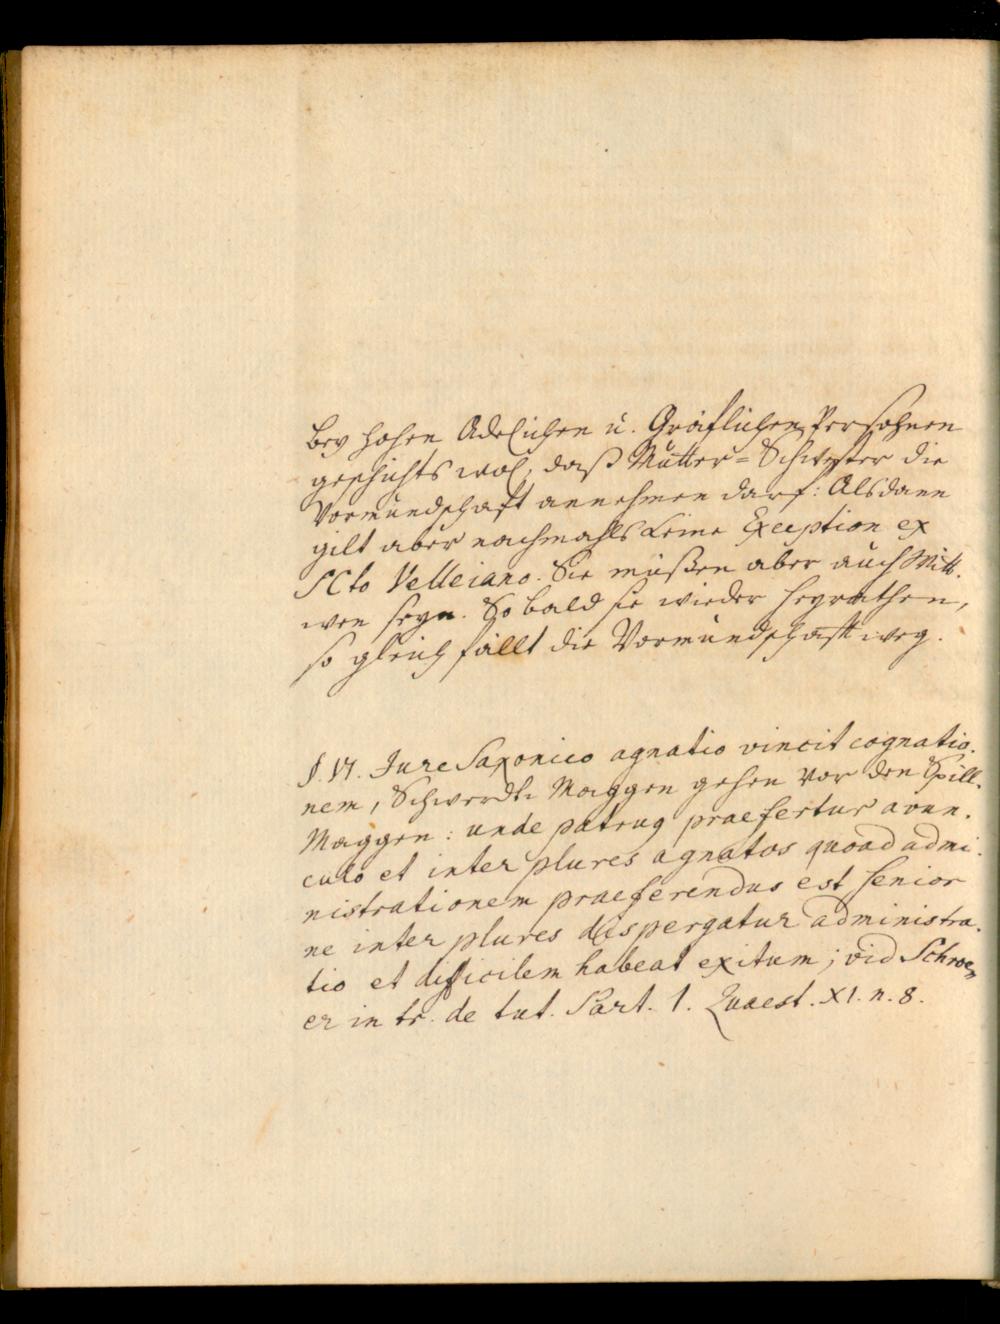 bey hohen Adelichen u. Gräflichen Persohnen
geschichts wol, daß Mutter-Schwester die
Vormundschaft annehmen darf: Alsdann
gilt aber nachmahls keine Exception ex
SCto Velleiano. Sie müßen aber auch Witt-
wen seyn. So bald sie wieder heyrathen,
so gleich fällt die Vormundschafft weg.
§. VI. Jure Saxonico agnatio vincit cognatio-
nem, Schwerdt-Maggen gehen vor den Spill-
Maggen: unde patruus praefertur avun-
culo et inter plures agnatos quoad admi-
nistrationem praeferendus est senior
ne inter plures dispergatur administra-
tio et difficilem habeat exitum; vid Schroe-
er in tr. de tut. Part. 1. Quaest. XI. n. 8.